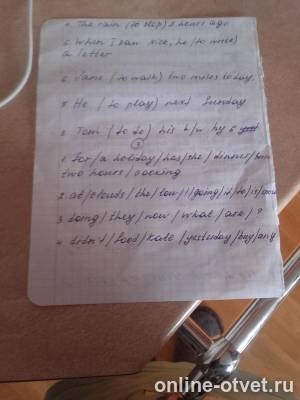 4. The rain (to stop) 2 hours ago
5. When I saw Nice, he (to write)
a letter
6. Jane (to walk) two miles today.
7. He (to play) next Sunday
8. Tom (to do) his h/w by 6
3
1. for/a holiday/has/she/dinner/been
two hours/cooking
2. at/clouds/the/low/!/going/it/to/is/
3 doing/they/now/what/are/?
4. didn't/food/Kate/yesterday/buy/any
online-otvet.ru